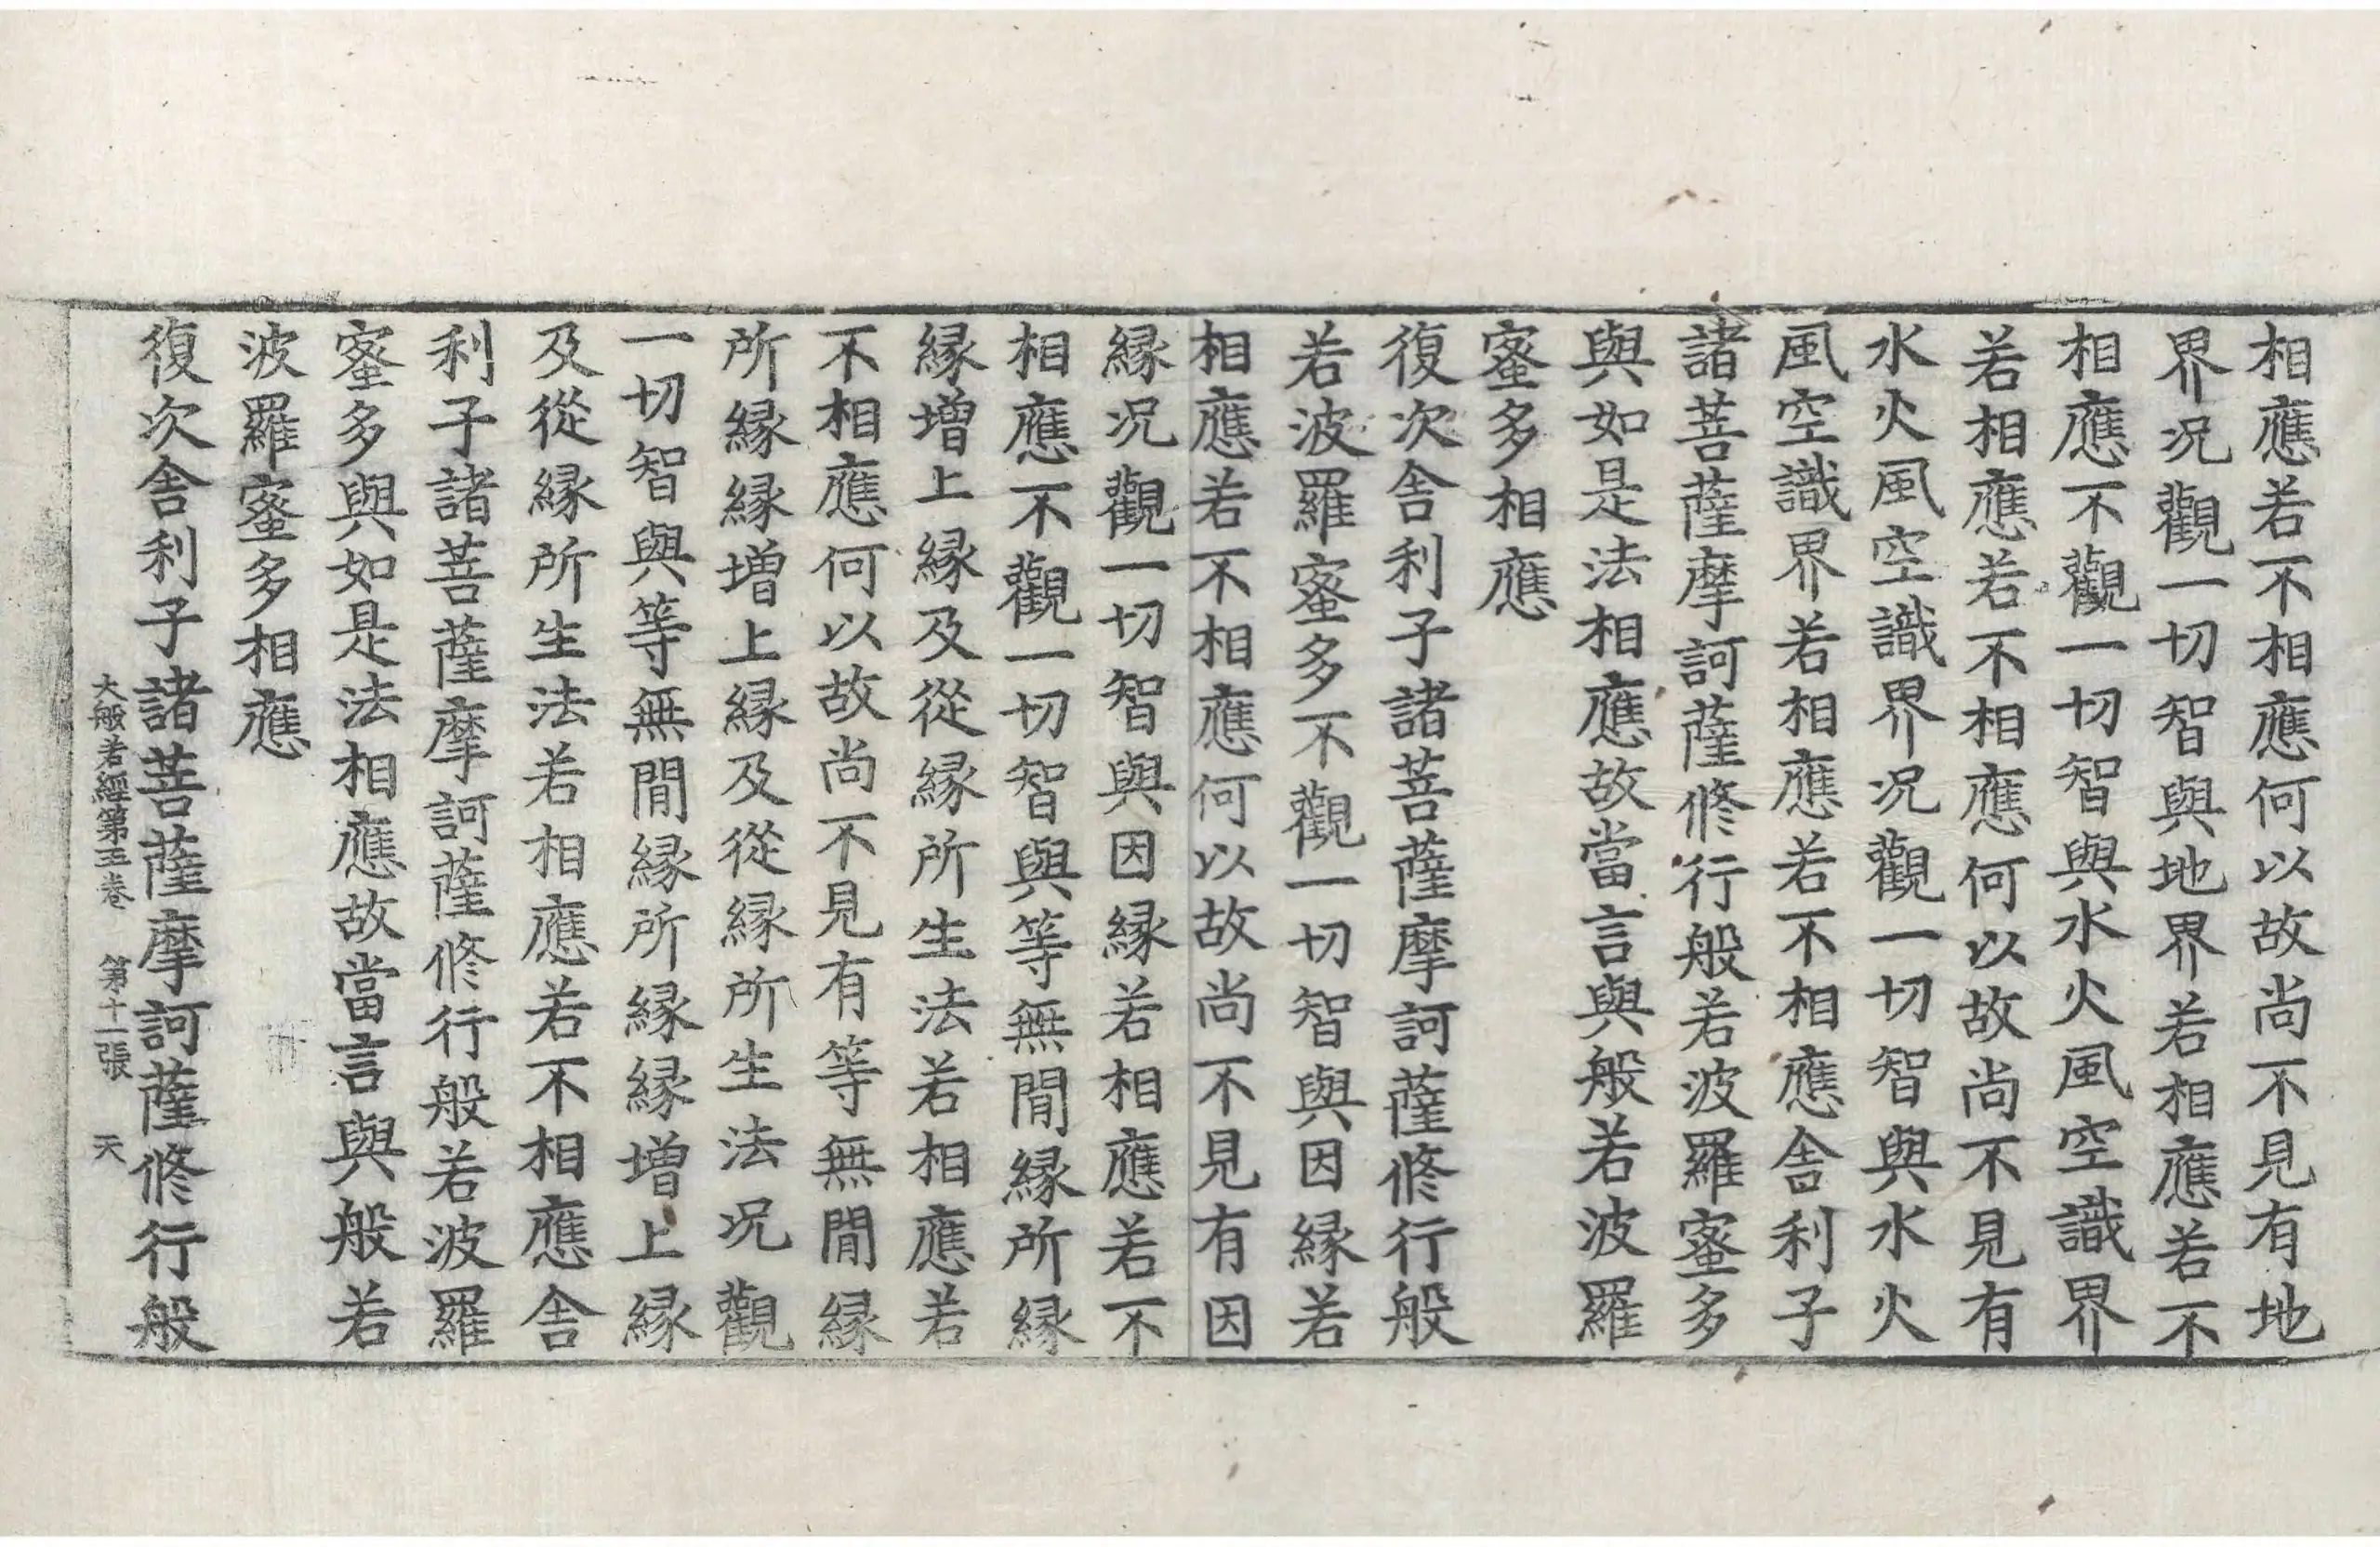 相應若不相應何以故尚不見有地
界况觀一切智與地界若相應若不
相應不觀一切智與水火風空識界
若相應若不相應何以故尚不見有
水火風空識界况觀一切智與水火
風空識界若相應若不相應舍利子
諸菩薩摩訶薩修行般若波羅蜜多
與如是法相應故當言與般若波羅
蜜多相應
復次舍利子諸菩薩摩訶薩修行般
若波羅蜜多不觀一切智與因縁若
相應若不相應何以故尚不見有因
縁况觀一切智與因縁若相應若不
相應不觀一切智與等無閒縁所縁
縁增上縁及從縁所生法若相應若
不相應何以故尚不見有等無閒縁
所縁縁增上縁及從縁所生法况觀
一切智與等無閒縁所縁縁增上縁
及從縁所生法若相應若不相應舍
利子諸菩薩摩訶薩修行般若波羅
蜜多與如是法相應故當言與般若
波羅蜜多相應
復次舍利子諸菩薩摩訶薩修行般
大般若經第五卷 第十一張 天